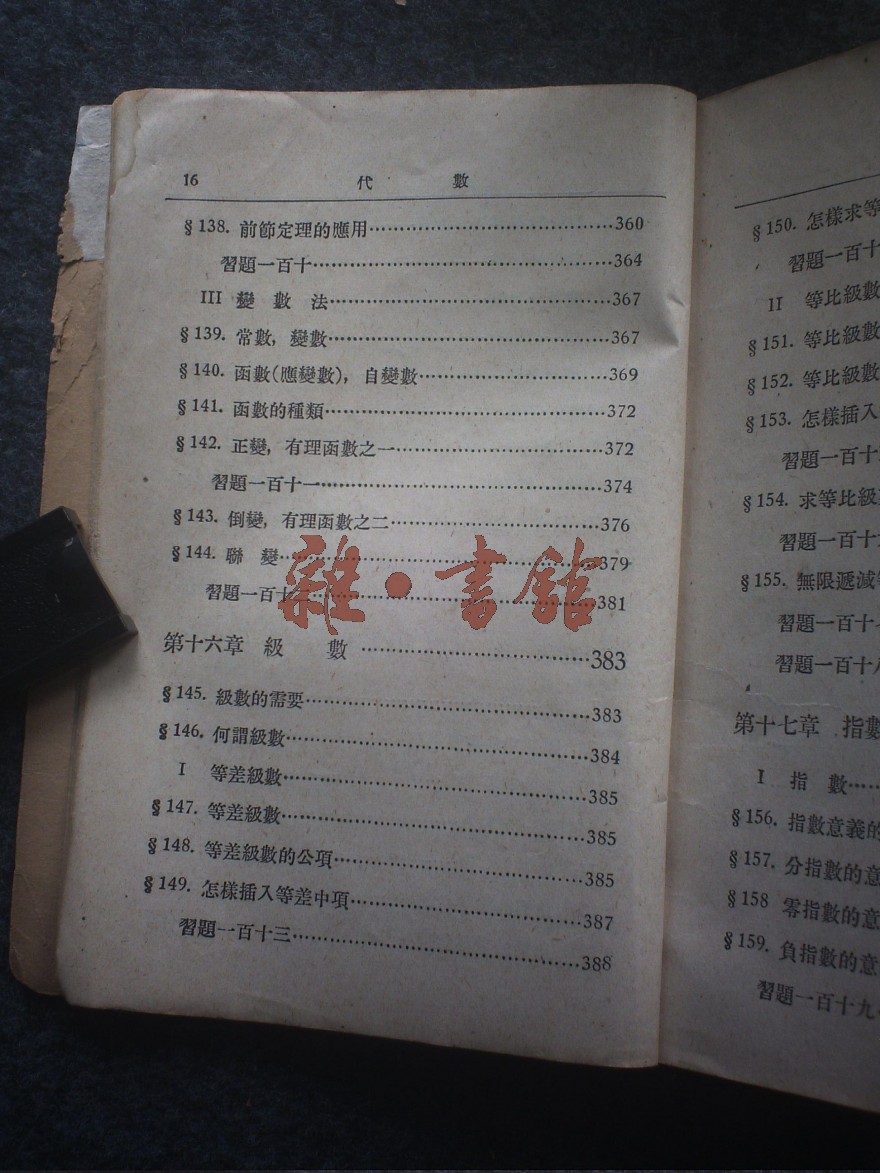 16 代 數
§138. 前節定理的應用……360
習題一百十……364
III 變 數 法……367
§139. 常數, 變數……367
§140. 函數(應變數), 自變數……369
§141. 函數的種類……372
§142. 正變, 有理函數之一……372
習題一百十一……374
§143. 倒變, 有理函數之二……376
§144. 聯 變……379
習題一百十二……381
雜·書館
第十六章 級 數……383
§145. 級數的需要……383
§146. 何謂級數……384
I 等差級數……385
§147. 等差級數……385
§148. 等差級數的公項……385
§149. 怎樣插入等差中項……387
習題一百十三……388
§150. 怎樣求等
習題一百十
II 等比級數
§151. 等比級數
§152. 等比級數
§153. 怎樣插入
習題一百十
§154. 求等比級
習題一百十
§155. 無限遞減
習題一百十
習題一百十八
第十七章 指數
I 指 數……
§156. 指數意義的
§157. 分指數的意
§158 零指數的意
§159. 負指數的意
習題一百十九